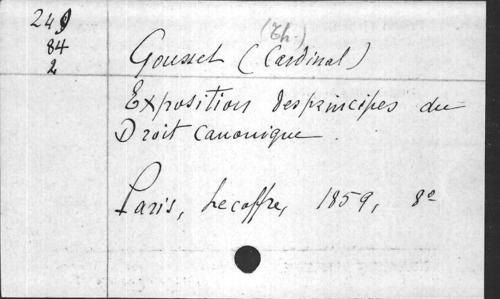 249
84
2
(Th.)
Gousset (Cardinal)
Exposition des principes du
Droit canonique.
Paris, Lecoffre, 1859, 8º